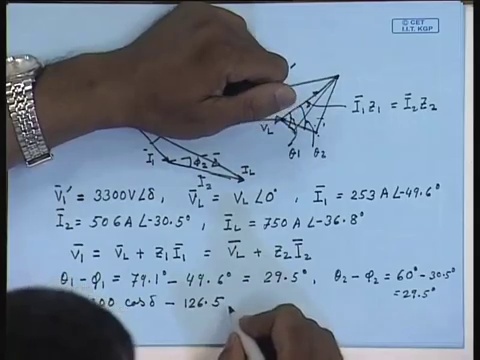 © CET
I.I.T. KGP
Ī₁Z₁ = Ī₂Z₂
V_L
θ₁ θ₂
Ī₁ φ₂
I₂ I_L
V̄₁' = 3300V∠δ, V̄_L = V_L∠0°, Ī₁ = 253 A∠-49.6°
Ī₂ = 506 A∠-30.5°, Ī_L = 750 A∠-36.8°
V̄₁ = V̄_L + Z₁Ī₁ = V̄_L + Z₂Ī₂
θ₁-φ₁ = 79.1° - 49.6° = 29.5°, θ₂-φ₂ = 60° - 30.5°
= 29.5°
00 cosδ - 126.5